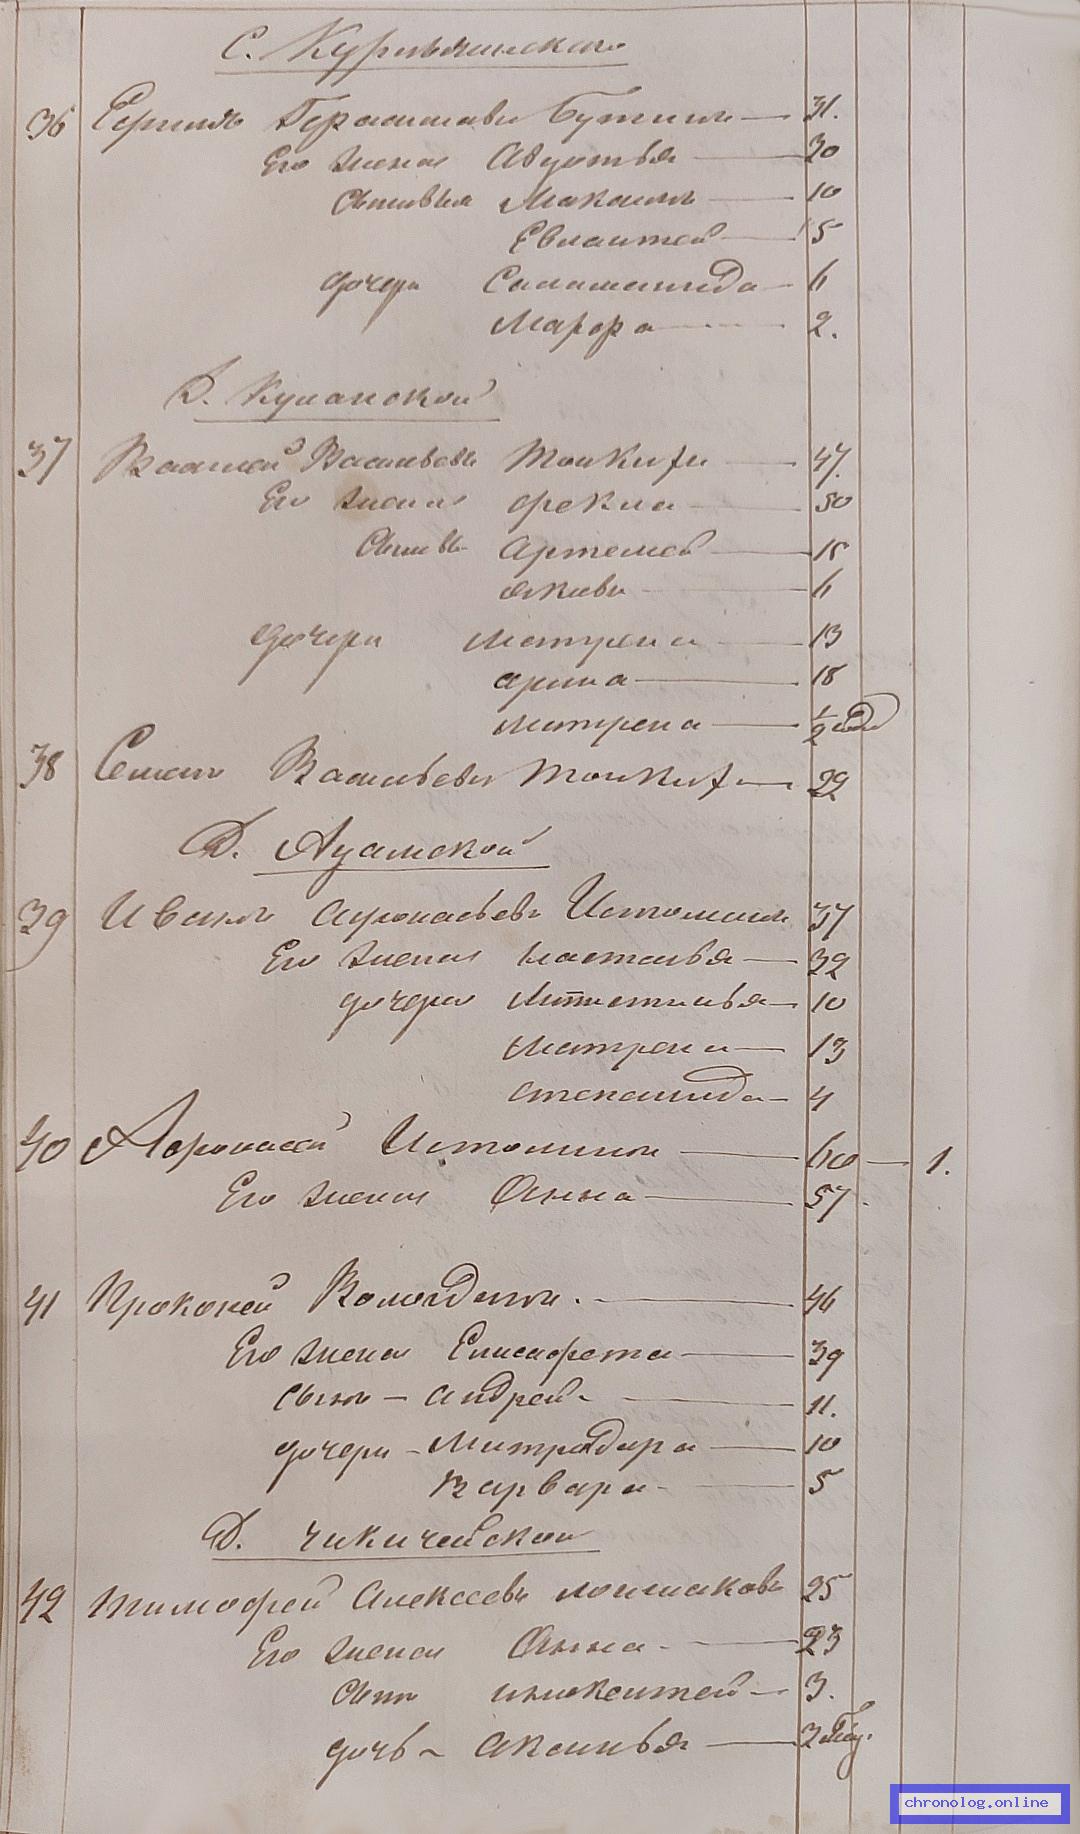 С.
36 Бутинъ — 31.
Его жена Авдотья — 30
Сыновья Максимъ — 10
Евлантей — 5
дочери Саламанида — 6
Марфа — 2.
Д. Куланской
37 Василей Васильевъ — 47.
Его жена Фекла — 50
Сыновь Артемей — 15
Яковъ — 6
дочери Матрена — 13
Арина — 18
Матрена — 1/2 год
38 Семенъ Васильевъ — 22
Д.
39 Иванъ Афонасьевъ Истоминъ 37
Его жена Настасья — 32
дочери — 10
Матрена — 13
Степанида — 4
40 Афонасей Истоминъ — 60 — 1.
Его жена Анна — 57
41 Прокопей Вологдинъ. — 46
Его жена Елисафета — 39
сынъ — Андрей — 11.
дочери — Митродора — 10
Варвара — 5
Д. Чикичейской
42 Тимофей Алексеевъ Лоншаковъ 25
Его жена Анна — 23
сынъ Инокентей — 3.
дочь — Аксинья — 2
chronolog.online